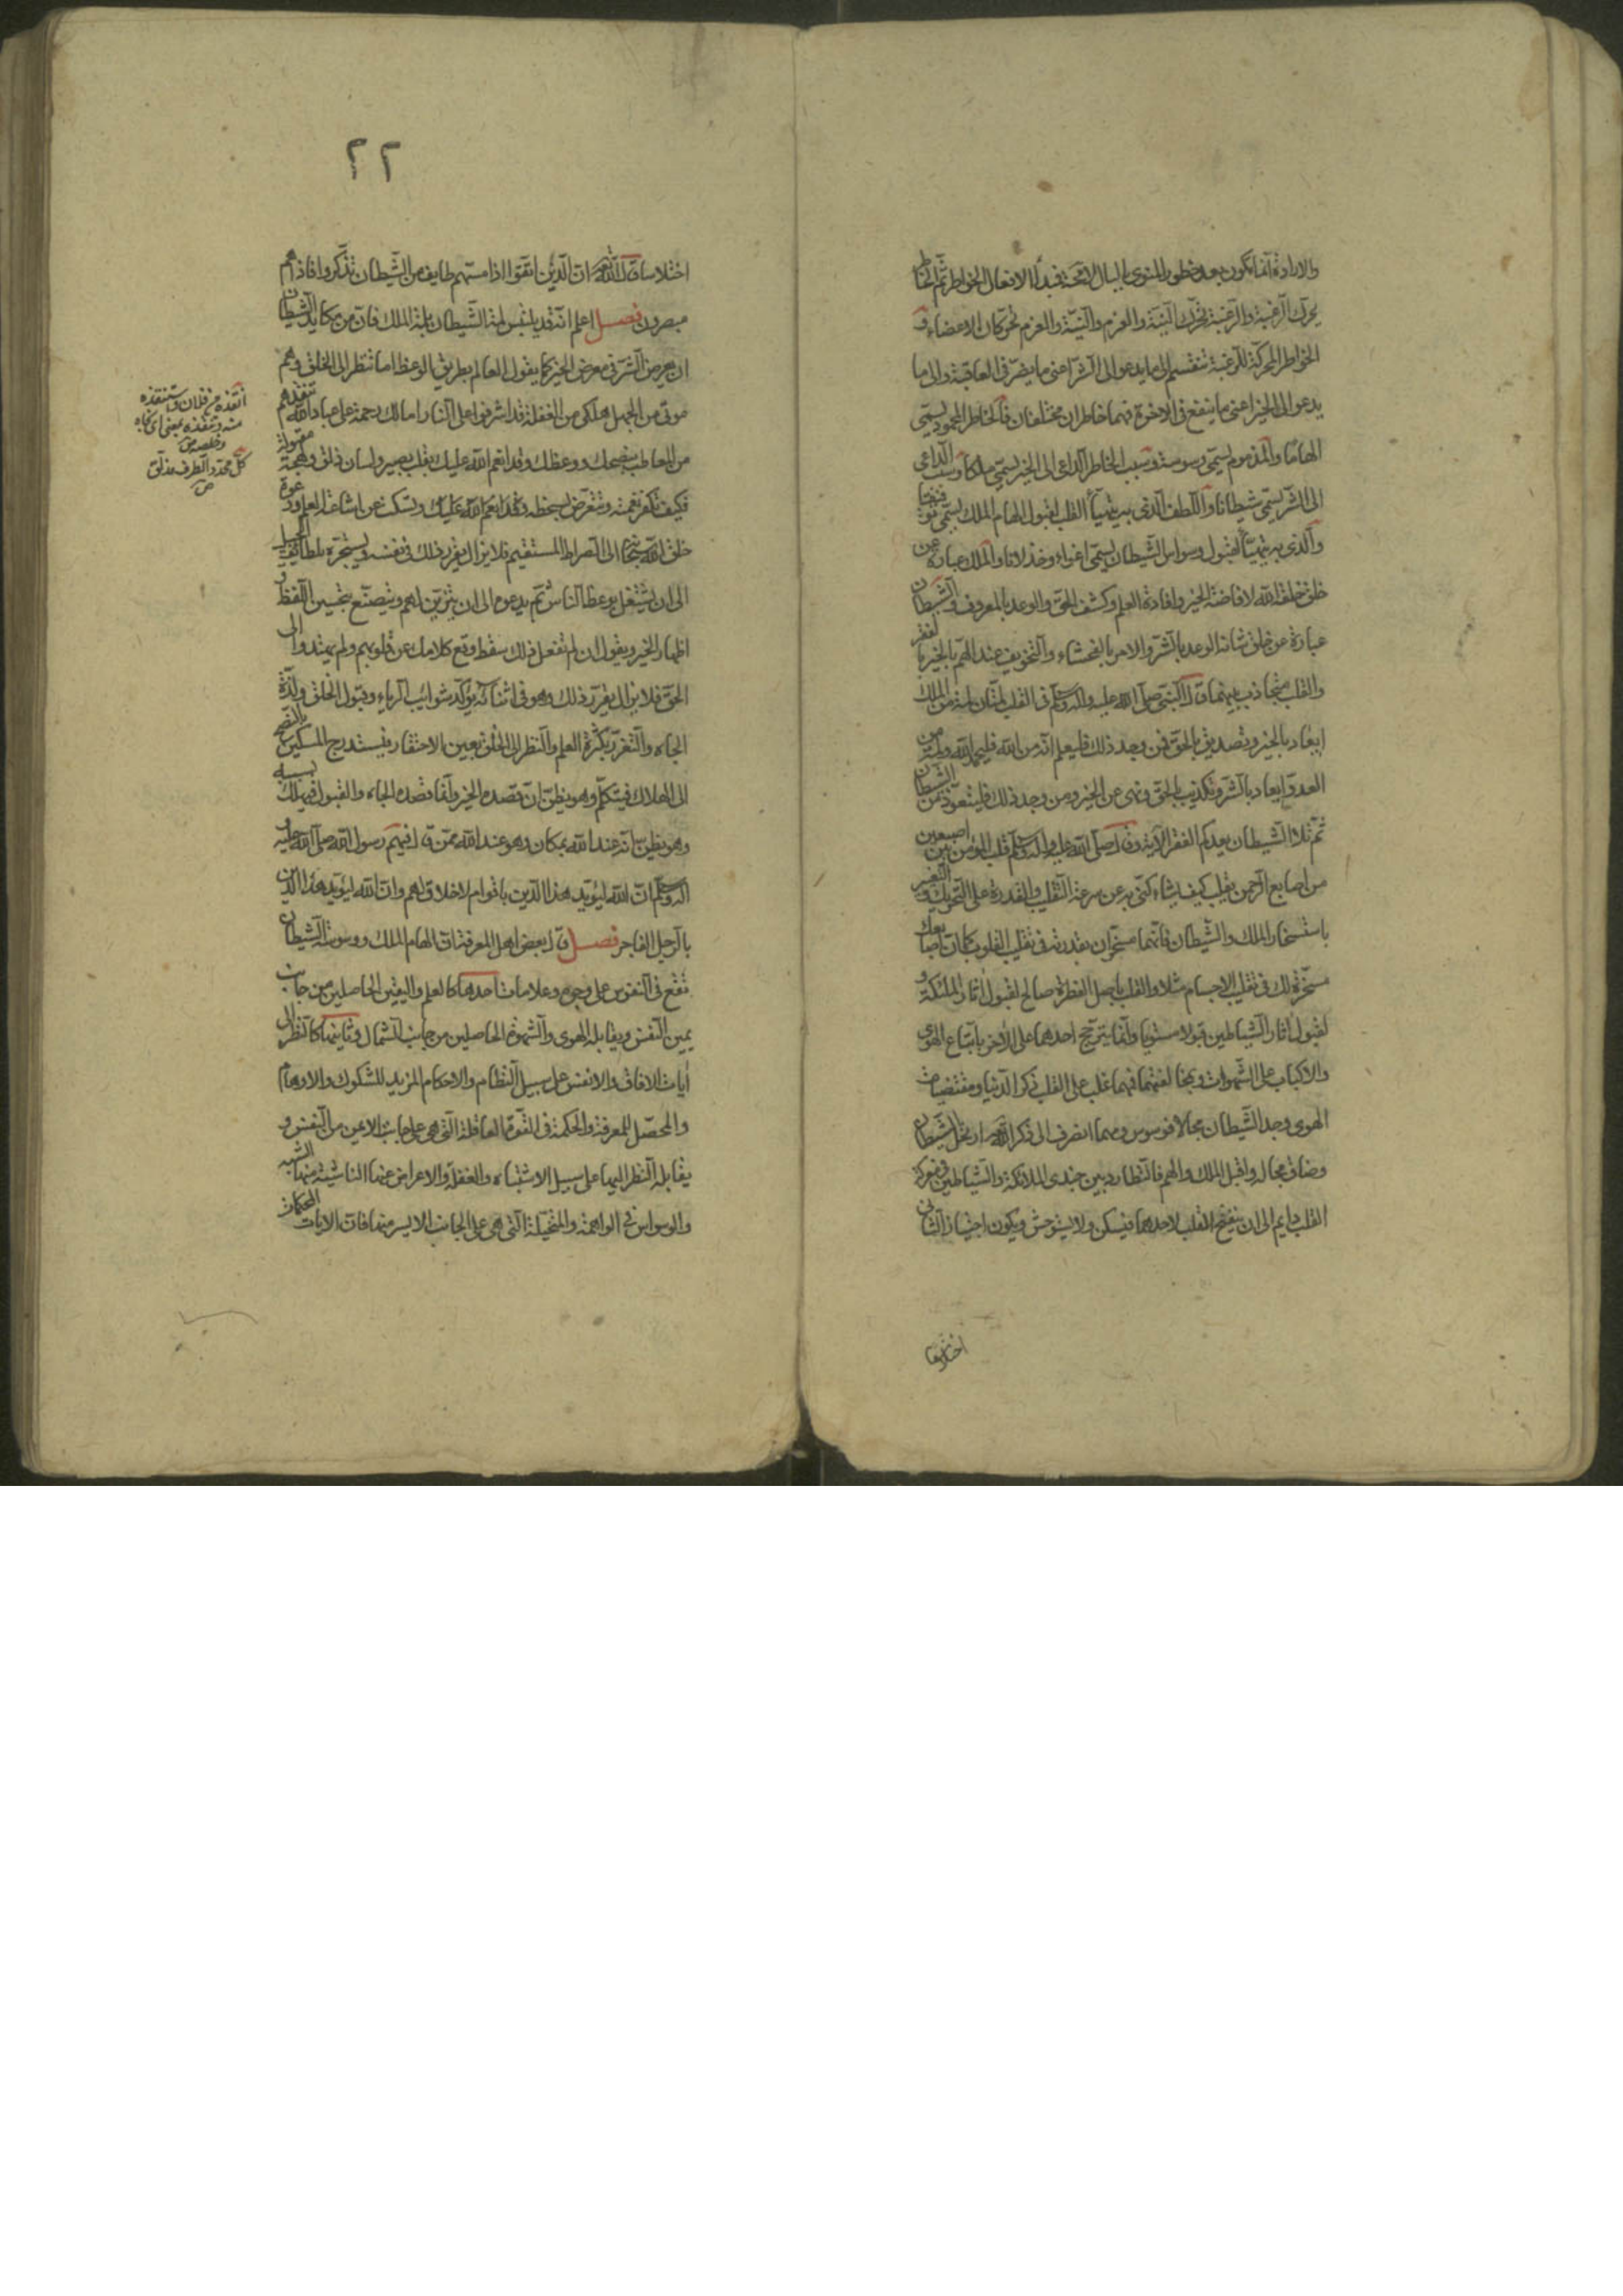 والارادة انما تكون بعد خطور المنوي بالبال لا محة فمبدأ الافعال الخواطر ثم الخاطر
يحرك الرغبة والرغبة تحرك النية والعزم والنية والعزم تحركان الاعضاء و
الخواطر المحركة للرغبة تنقسم الى ما يدعو الى الشر اعني ما يضر في العاقبة والى ما
يدعو الى الخير اعني ما ينفع في الاخرة فهما خاطران مختلفان فالخاطر المحمود يسمى
الهاما والمذموم يسمى وسوسة وسبب الخاطر الداعي الى الخير يسمى ملكا وسبب الداعي
الى الشر يسمى شيطانا واللطف الذي به يتهيأ القلب لقبول الهام الملك يسمى توفيقا
والذي به يتهيأ لقبول وسواس الشيطان يسمى اغواء وخذلانا والملك عبارة عن
خلق خلقه الله لافاضة الخير وافادة العلم وكشف الحق والوعد بالمعروف والشيطان
عبارة عن خلق شانه الوعد بالشر والامر بالفحشاء والتخويف عند الهم بالخير بالفقر
والقلب متجاذب بينهما قال النبي صلى الله عليه واله وسلم في القلب لمتان لمة من الملك
ايعاد بالخير وتصديق بالحق فمن وجد ذلك فليعلم انه من الله فليحمد الله ولمة من
العدو ايعاد بالشر وتكذيب بالحق ونهي عن الخير ومن وجد ذلك فليتعوذ من الشيطان
ثم تلا الشيطان يعدكم الفقر الآية وقال صلى الله عليه واله وسلم قلب المؤمن بين اصبعين
من اصابع الرحمن يقلب كيف يشاء كني به عن سرعة التقليب والقدرة على التحريك والتغيير
باستسخار الملك والشيطان فانهما مسخران بقدرته في تقليب القلوب كما ان اصابعك
مسخرة لك في تقليب الاجسام مثلا والقلب باصل الفطرة صالح لقبول اثار الملئكة و
لقبول اثار الشياطين قبولا مستويا وانما يترجح احدهما على الاخر باتباع الهوى
والاكباب على الشهوات وبمخالفتهما فمهما غلب على القلب ذكر الدنيا ومقتضيات
الهوى وجد الشيطان مجالا فوسوس ومهما انصرف الى ذكر الله ارتحل الشيطان
وضاق مجاله واقبل الملك والهم فالتطارد بين جندي الملائكة والشياطين في معركة
القلب دايم الى ان ينفتح القلب لاحدهما فيسكن ولا يستوحش ويكون اجتياز الثاني
اختلاسا
٢٢
اختلاسا قال الله ان الذين اتقوا اذا مسهم طايف من الشيطان تذكروا فاذا هم
مبصرون فصل اعلم انه قد يلتبس لمة الشيطان بلمة الملك فان من مكايد الشيطان
ان يعرض الشر في معرض الخير كما يقول للعالم بطريق الوعظ اما تنظر الى الخلق وهم
موتى من الجهل هلكى من الغفلة قد اشرفوا على النار اما لك رحمة على عباد الله تنقذهم
من المعاطب بنصحك ووعظك وقد انعم الله عليك بقلب بصير ولسان ذلق ولهجة مقبولة
فكيف تكفر نعمته وتتعرض لسخطه وتسكت عن اشاعة العلم ودعوة
خلق الله الى الصراط المستقيم فلا يزال يقرر ذلك في نفسه ويستجره بلطائف الحيل
الى ان يشتغل بوعظ الناس ثم يدعوه الى ان يتزين لهم ويتصنع بتحسين اللفظ و
اظهار الخير ويقول ان لم تفعل ذلك سقط وقع كلامك عن قلوبهم ولم يهتدوا الى
الحق فلا يزال يقرر ذلك وهو في اثنائه يؤكد شوائب الرياء وقبول الخلق ولذة
الجاه والتعزز بكثرة العلم والنظر الى الخلق بعين الاحتقار فيستدرج المسكين بالنصح
الى الهلاك فيتكلم وهو يظن ان قصده الخير وانما قصده الجاه والقبول فيهلك بسببه
وهو يظن انه عند الله بمكان وهو عند الله ممن قال فيهم رسول الله صلى الله عليه و
اله وسلم ان الله ليؤيد هذا الدين باقوام لا خلاق لهم وان الله ليؤيد هذا الدين
بالرجل الفاجر فصل قال بعض اهل المعرفة ان الهام الملك ووسوسة الشيطان
تقع في النفوس على وجوه وعلامات احدها كالعلم واليقين الحاصلين من جانب
يمين النفس ويقابله الهوى والشهوة الحاصلين من جانب الشمال وثانيها كالنظر الى
آيات الافاق والانفس على سبيل النظام والاحكام المزيد للشكوك والاوهام
والمحصل للمعرفة والحكمة في القوة العاقلة التي هي على جانب الايمن من النفس و
يقابله النظر اليها على سبيل الاشتباه والغفلة والاعراض عنها الناشية منها الشبه
والوسواس في الواهمة والمتخيلة التي هي على الجانب الايسر منها فان الايات المحكمات
انقذه من فلان واستنقذه
منه وتنقذه بمعنى اي نجاه
وخلصه ص
كل محدد الطرف مذلق
ص